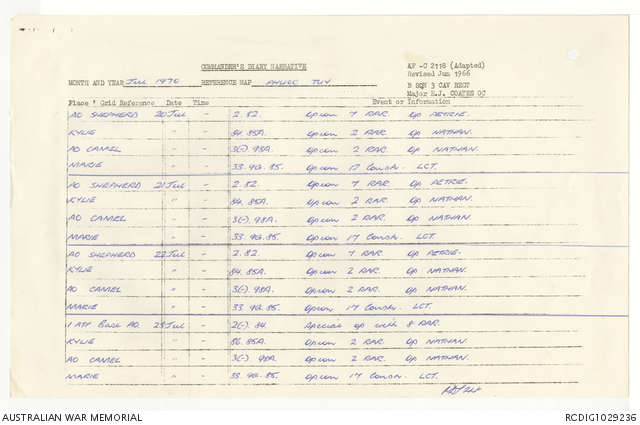 COMMANDER'S DIARY NARRATIVE
AF -C 2118 (Adapted)
Revised Jun 1966
MONTH AND YEAR JUL 1970 REFERENCE MAP PHUOC TUY
B SQN 3 CAV REGT
Major R.J. COATES OC
Place ' Grid Reference Date Time Event or Information
AO SHEPHERD 20 Jul - 2. 82. Opcon 7 RAR Op PETRIE.
KYLIE " - 84. 85A. Opcon 2 RAR Op NATHAN.
AO CAMEL " - 3(-). 98A. Opcon 2 RAR Op NATHAN.
MARIE " - 33. 9G. 85. Opcon 17 Constr. LCT.
AO SHEPHERD 21 Jul - 2. 82. Opcon 7 RAR Op PETRIE.
KYLIE " - 84. 85A. Opcon 2 RAR Op NATHAN.
AO CAMEL " - 3(-). 98A. Opcon 2 RAR. Op NATHAN.
MARIE " - 33. 9G. 85. Opcon 17 Constr. LCT.
AO SHEPHERD 22 Jul - 2. 82. Opcon 7 RAR Op PETRIE.
KYLIE " - 84. 85A. Opcon 2 RAR. Op NATHAN.
AO CAMEL " - 3(-). 98A. Opcon 2 RAR. Op NATHAN.
MARIE " - 33. 9G. 85. Opcon 17 Constr. LCT.
1 ATF Base AO. 23 Jul - 2(-). 84. Special op with 8 RAR.
KYLIE " - 86. 85A. Opcon 2 RAR. Op NATHAN.
AO CAMEL " - 3(-). 98A. Opcon 2 RAR. Op NATHAN.
MARIE " - 33. 9G. 85. Opcon 17 Constr. LCT.
AUSTRALIAN WAR MEMORIAL RCDIG1029236